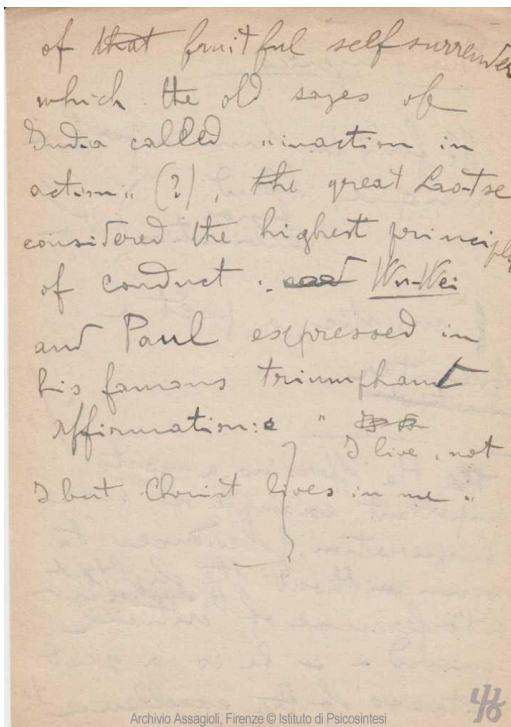 of that fruitful self surrender
which the old sages of
India called "inaction in
action" (?), the great Lao-tse
considered the highest principle
of conduct : Wu-Wei
and Paul expressed in
his famous triumphant
affirmation: "
I live, not
I but Christ lives in me"
Archivio Assagioli, Firenze © Istituto di Psicosintesi